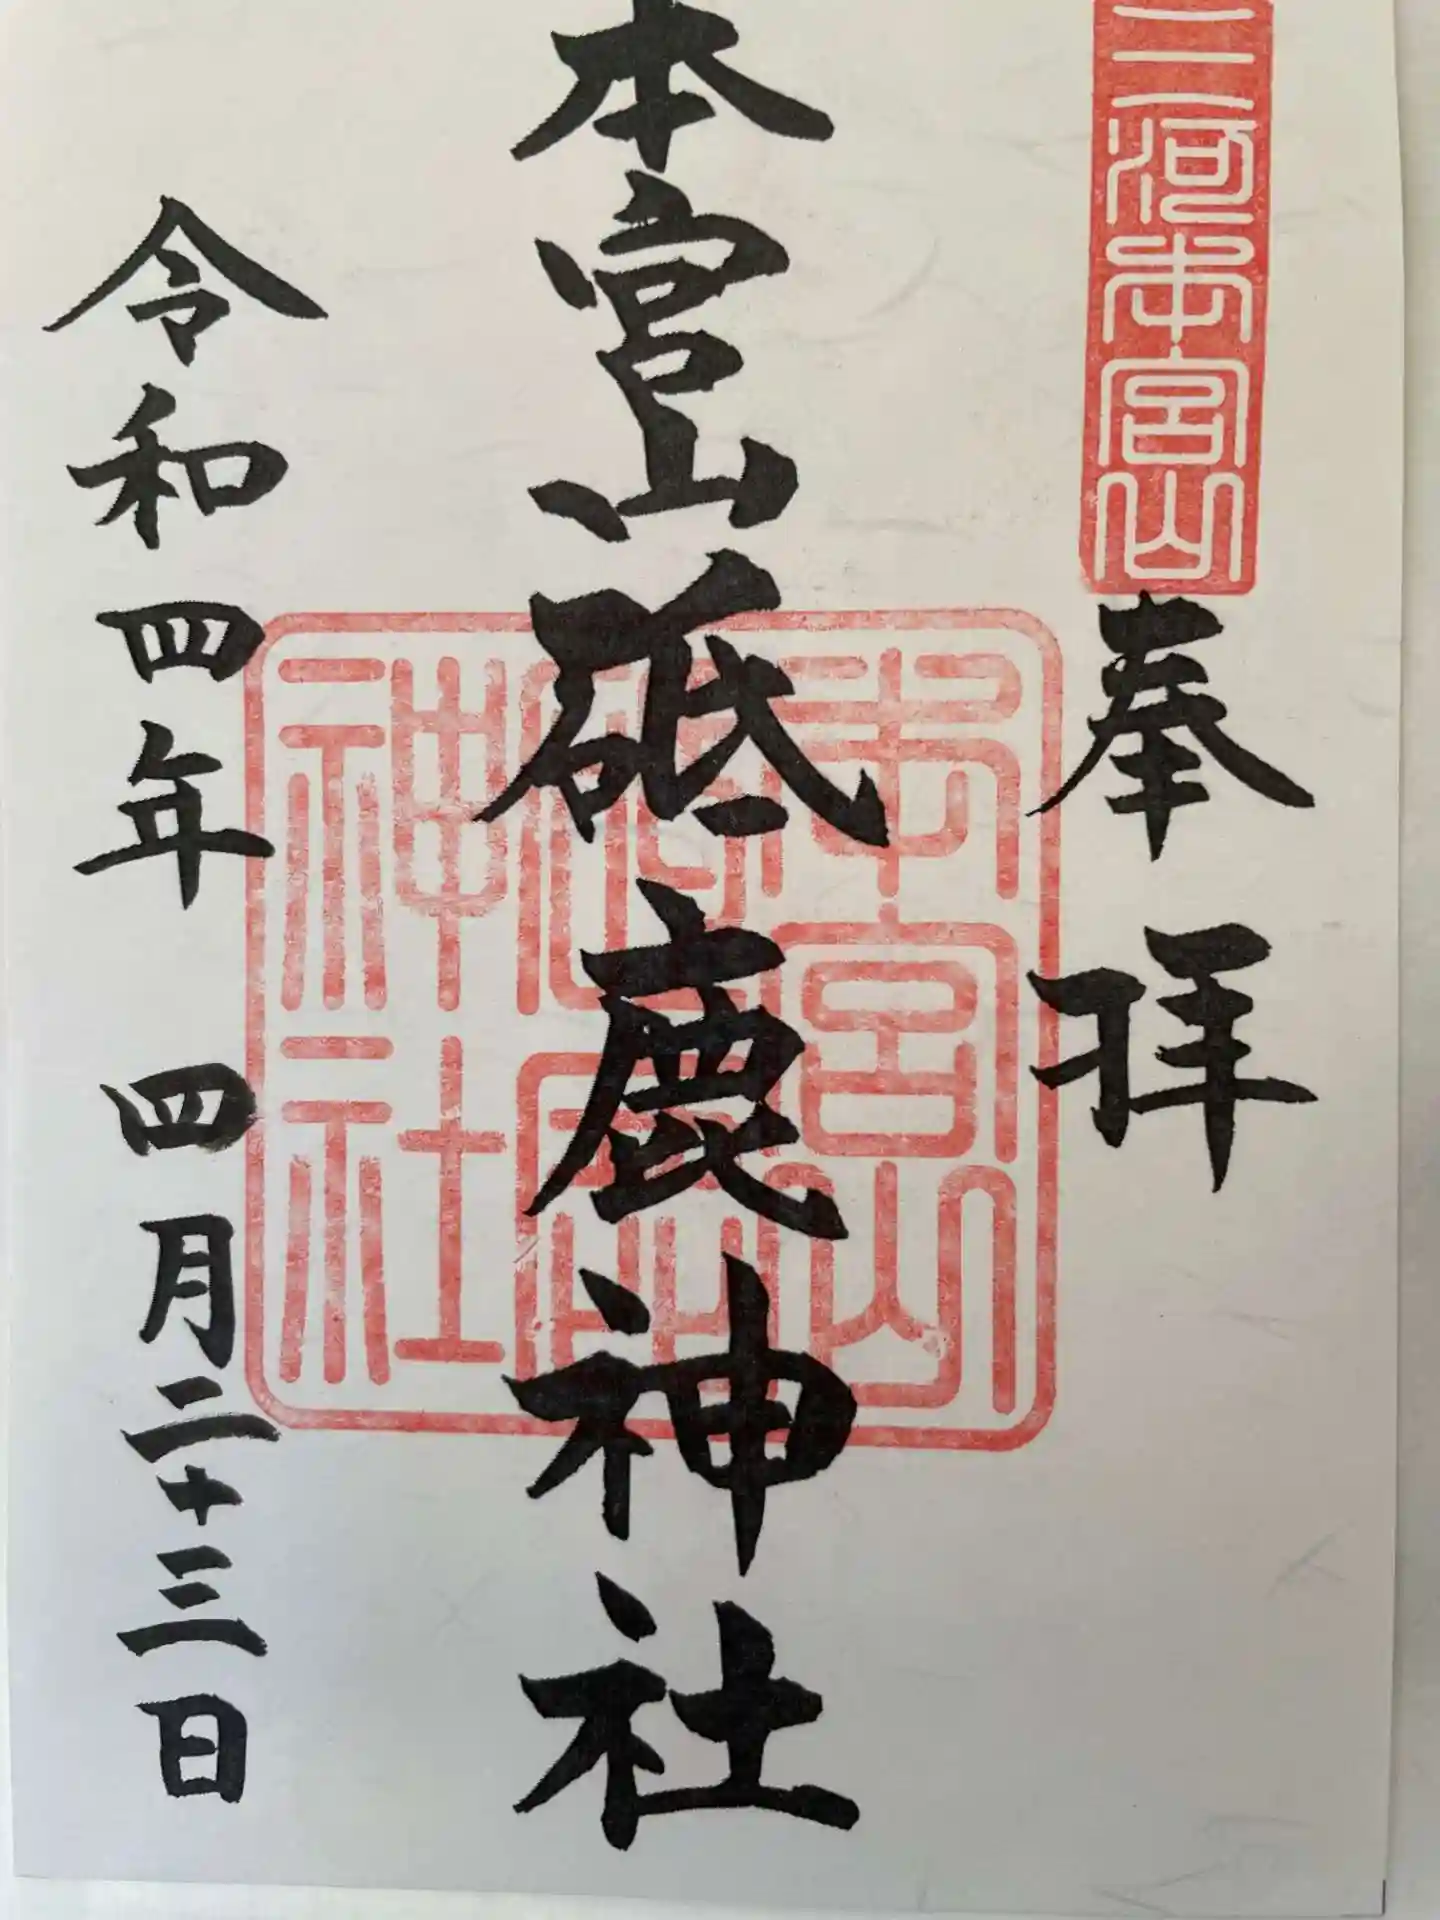 三河本宮山
奉拝
本宮山砥鹿神社
本宮山
砥鹿
神社
令和四年 四月二十三日